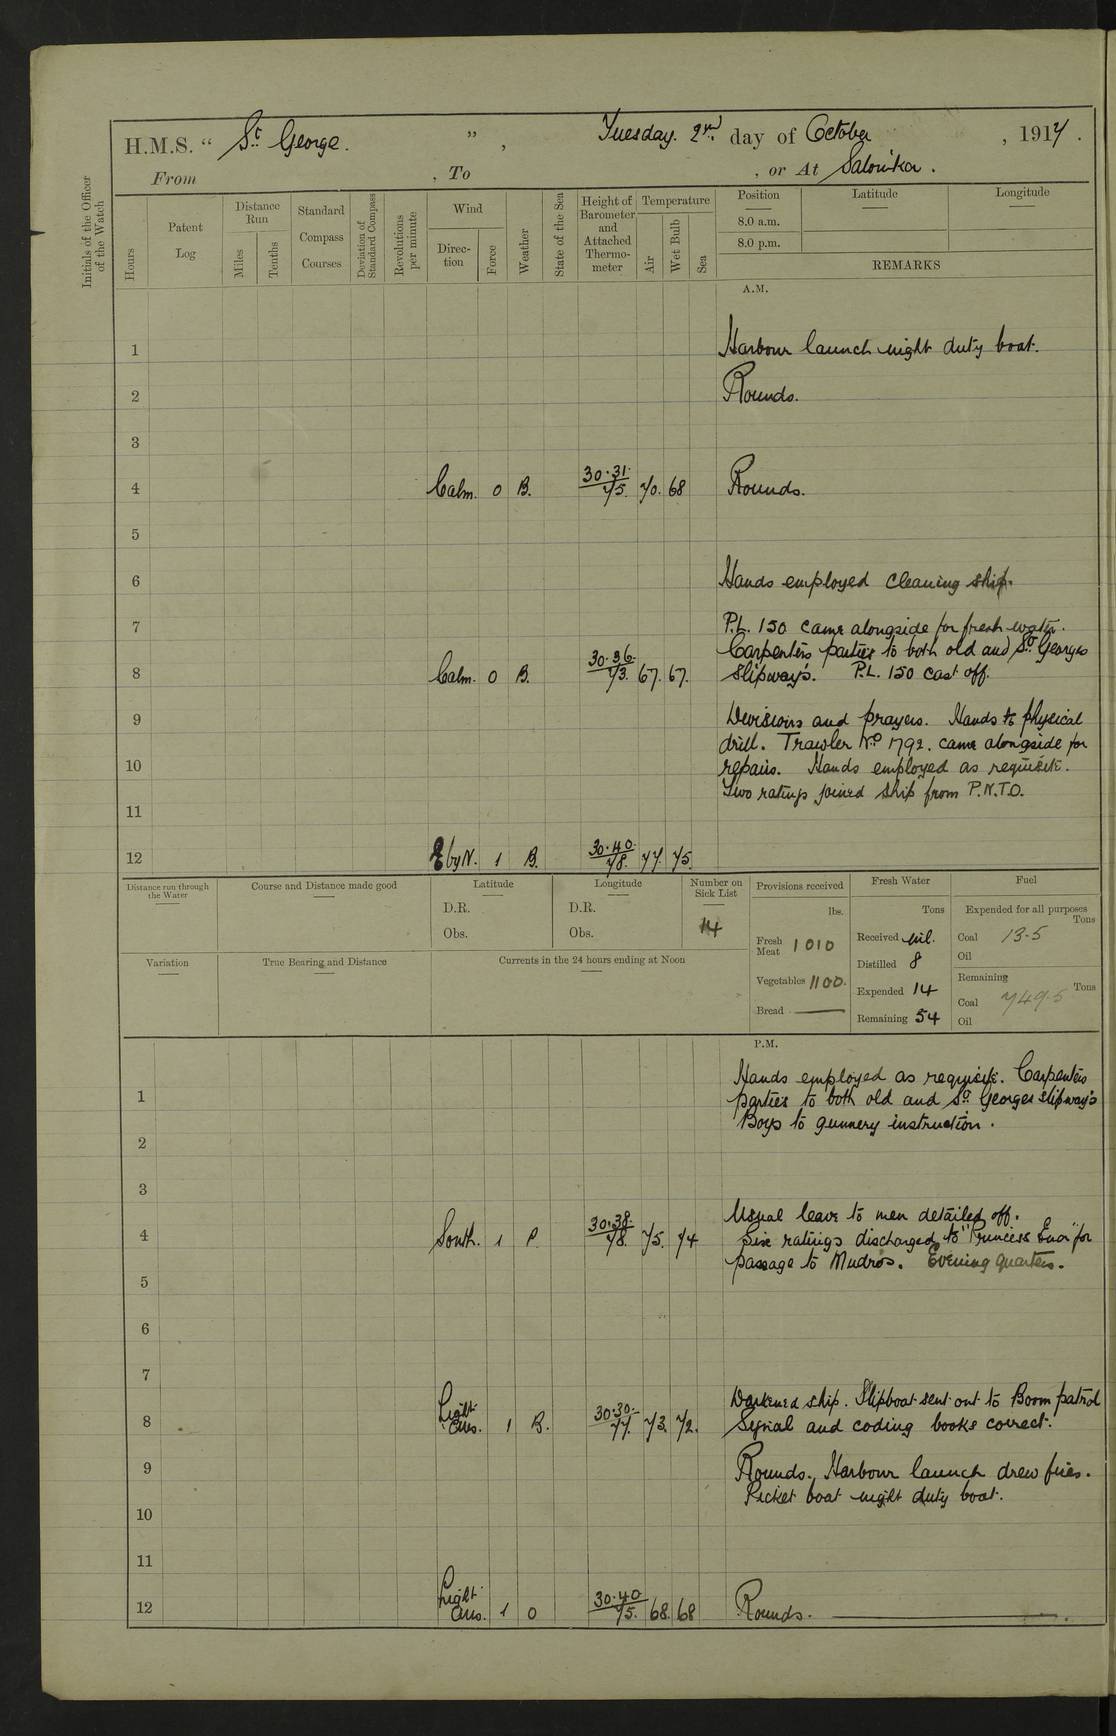 H.M.S. “ St George. ” , Tuesday. 2nd day of October , 1917 .
From , To , or At Salonika .
Initials of the Officer of the Watch
Hours
Patent Log
Distance Run
Miles
Tenths
Standard Compass Courses
Deviation of Standard Compass
Revolutions per minute
Wind
Direc-tion
Force
Weather
State of the Sea
Height of Barometer and Attached Thermo-meter
Temperature
Air
Wet Bulb
Sea
Position
8.0 a.m.
8.0 p.m.
Latitude
Longitude
REMARKS
A.M.
1 Harbour launch night duty boat.
2 Rounds.
3
4 Calm. 0 B. 30.31. 75. 70. 68 Rounds.
5
6 Hands employed cleaning ship.
7 P.L. 150 came alongside for fresh water.
Carpenters parties to both old and St. Georges
8 Calm. 0 B. 30.36. 73. 67. 67. slipway's. P.L. 150 cast off.
9 Divisions and prayers. Hands to physical
drill. Trawler No 1792. came alongside for
10 repairs. Hands employed as requisite.
Two ratings joined ship from P.N.T.O.
11
12 E by N. 1 B. 30.40. 78. 77. 75.
Distance run through the Water
Course and Distance made good
Latitude
D.R.
Obs.
Longitude
D.R.
Obs.
Number on Sick List
14
Provisions received
lbs.
Fresh Meat 1010
Vegetables 1100.
Bread —
Fresh Water
Tons
Received nil.
Distilled 8
Expended 14
Remaining 54
Fuel
Expended for all purposes
Tons
Coal 13.5
Oil
Remaining
Tons
Coal 749.5
Oil
Variation
True Bearing and Distance
Currents in the 24 hours ending at Noon
P.M.
Hands employed as requisite. Carpenters
1 parties to both old and St. Georges slipway's
Boys to gunnery instruction.
2
3
Usual leave to men detailed off.
4 South. 1 30.38. 78. 75. 74 Six ratings discharged to "Princess Ena" for
passage to Mudros. Evening quarters.
5
6
7
Darkened ship. Slipboat sent out to Boom patrol
8 Light airs. 1 B. 30.30. 77. 73. 72. Signal and coding books correct.
9 Rounds. Harbour launch drew fires.
Picket boat night duty boat.
10
11
12 Light airs. 1 0 30.40 75. 68. 68 Rounds.